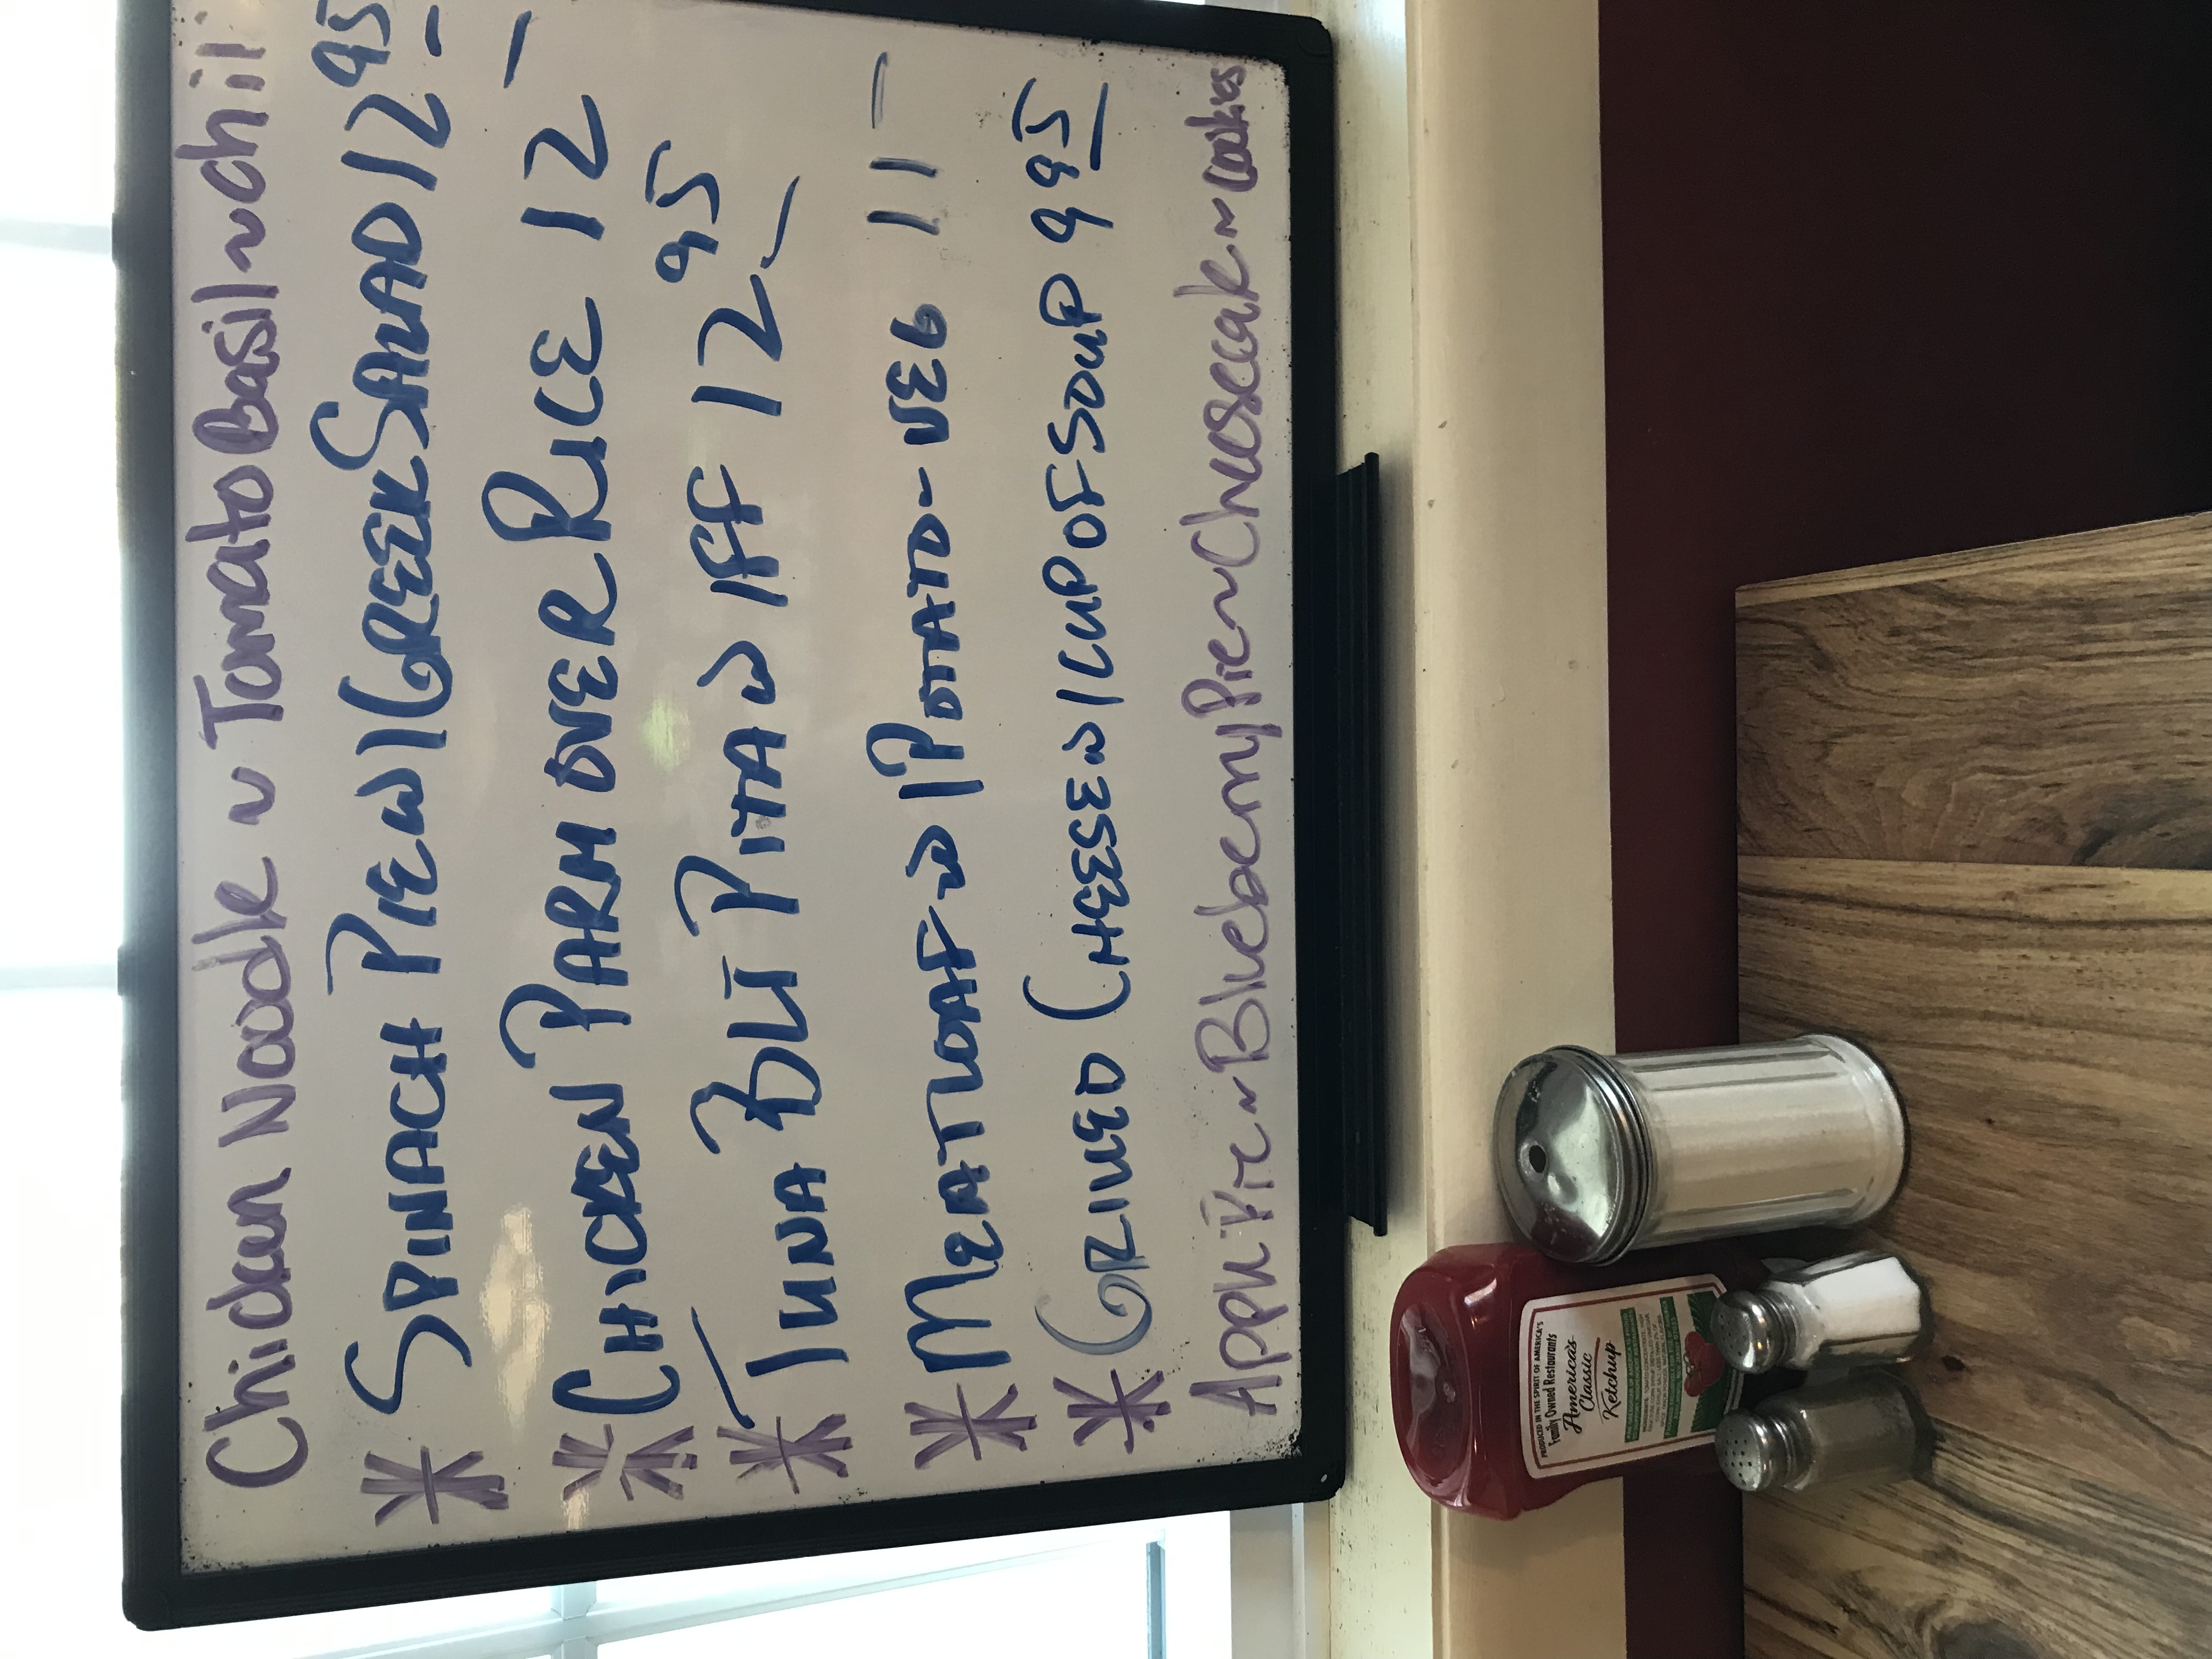 Chicken Noodle ~ Tomato Basil ~ chili
* SPINACH PIE W/ GREEK SALAD 12 95
* CHICKEN PARM OVER RICE 12 —
* TUNA BLT PITA W/ FF 12 95
* MEATLOAF W/ POTATO - VEG 11 —
* GRILLED CHEESE W/ CUP OF SOUP 9 95
Apple Pie ~ Blueberry Pie ~ Cheesecake ~ Cookies
PRODUCED IN THE SPIRIT OF AMERICA'S
Family Owned Restaurants
America's
Classic
Ketchup